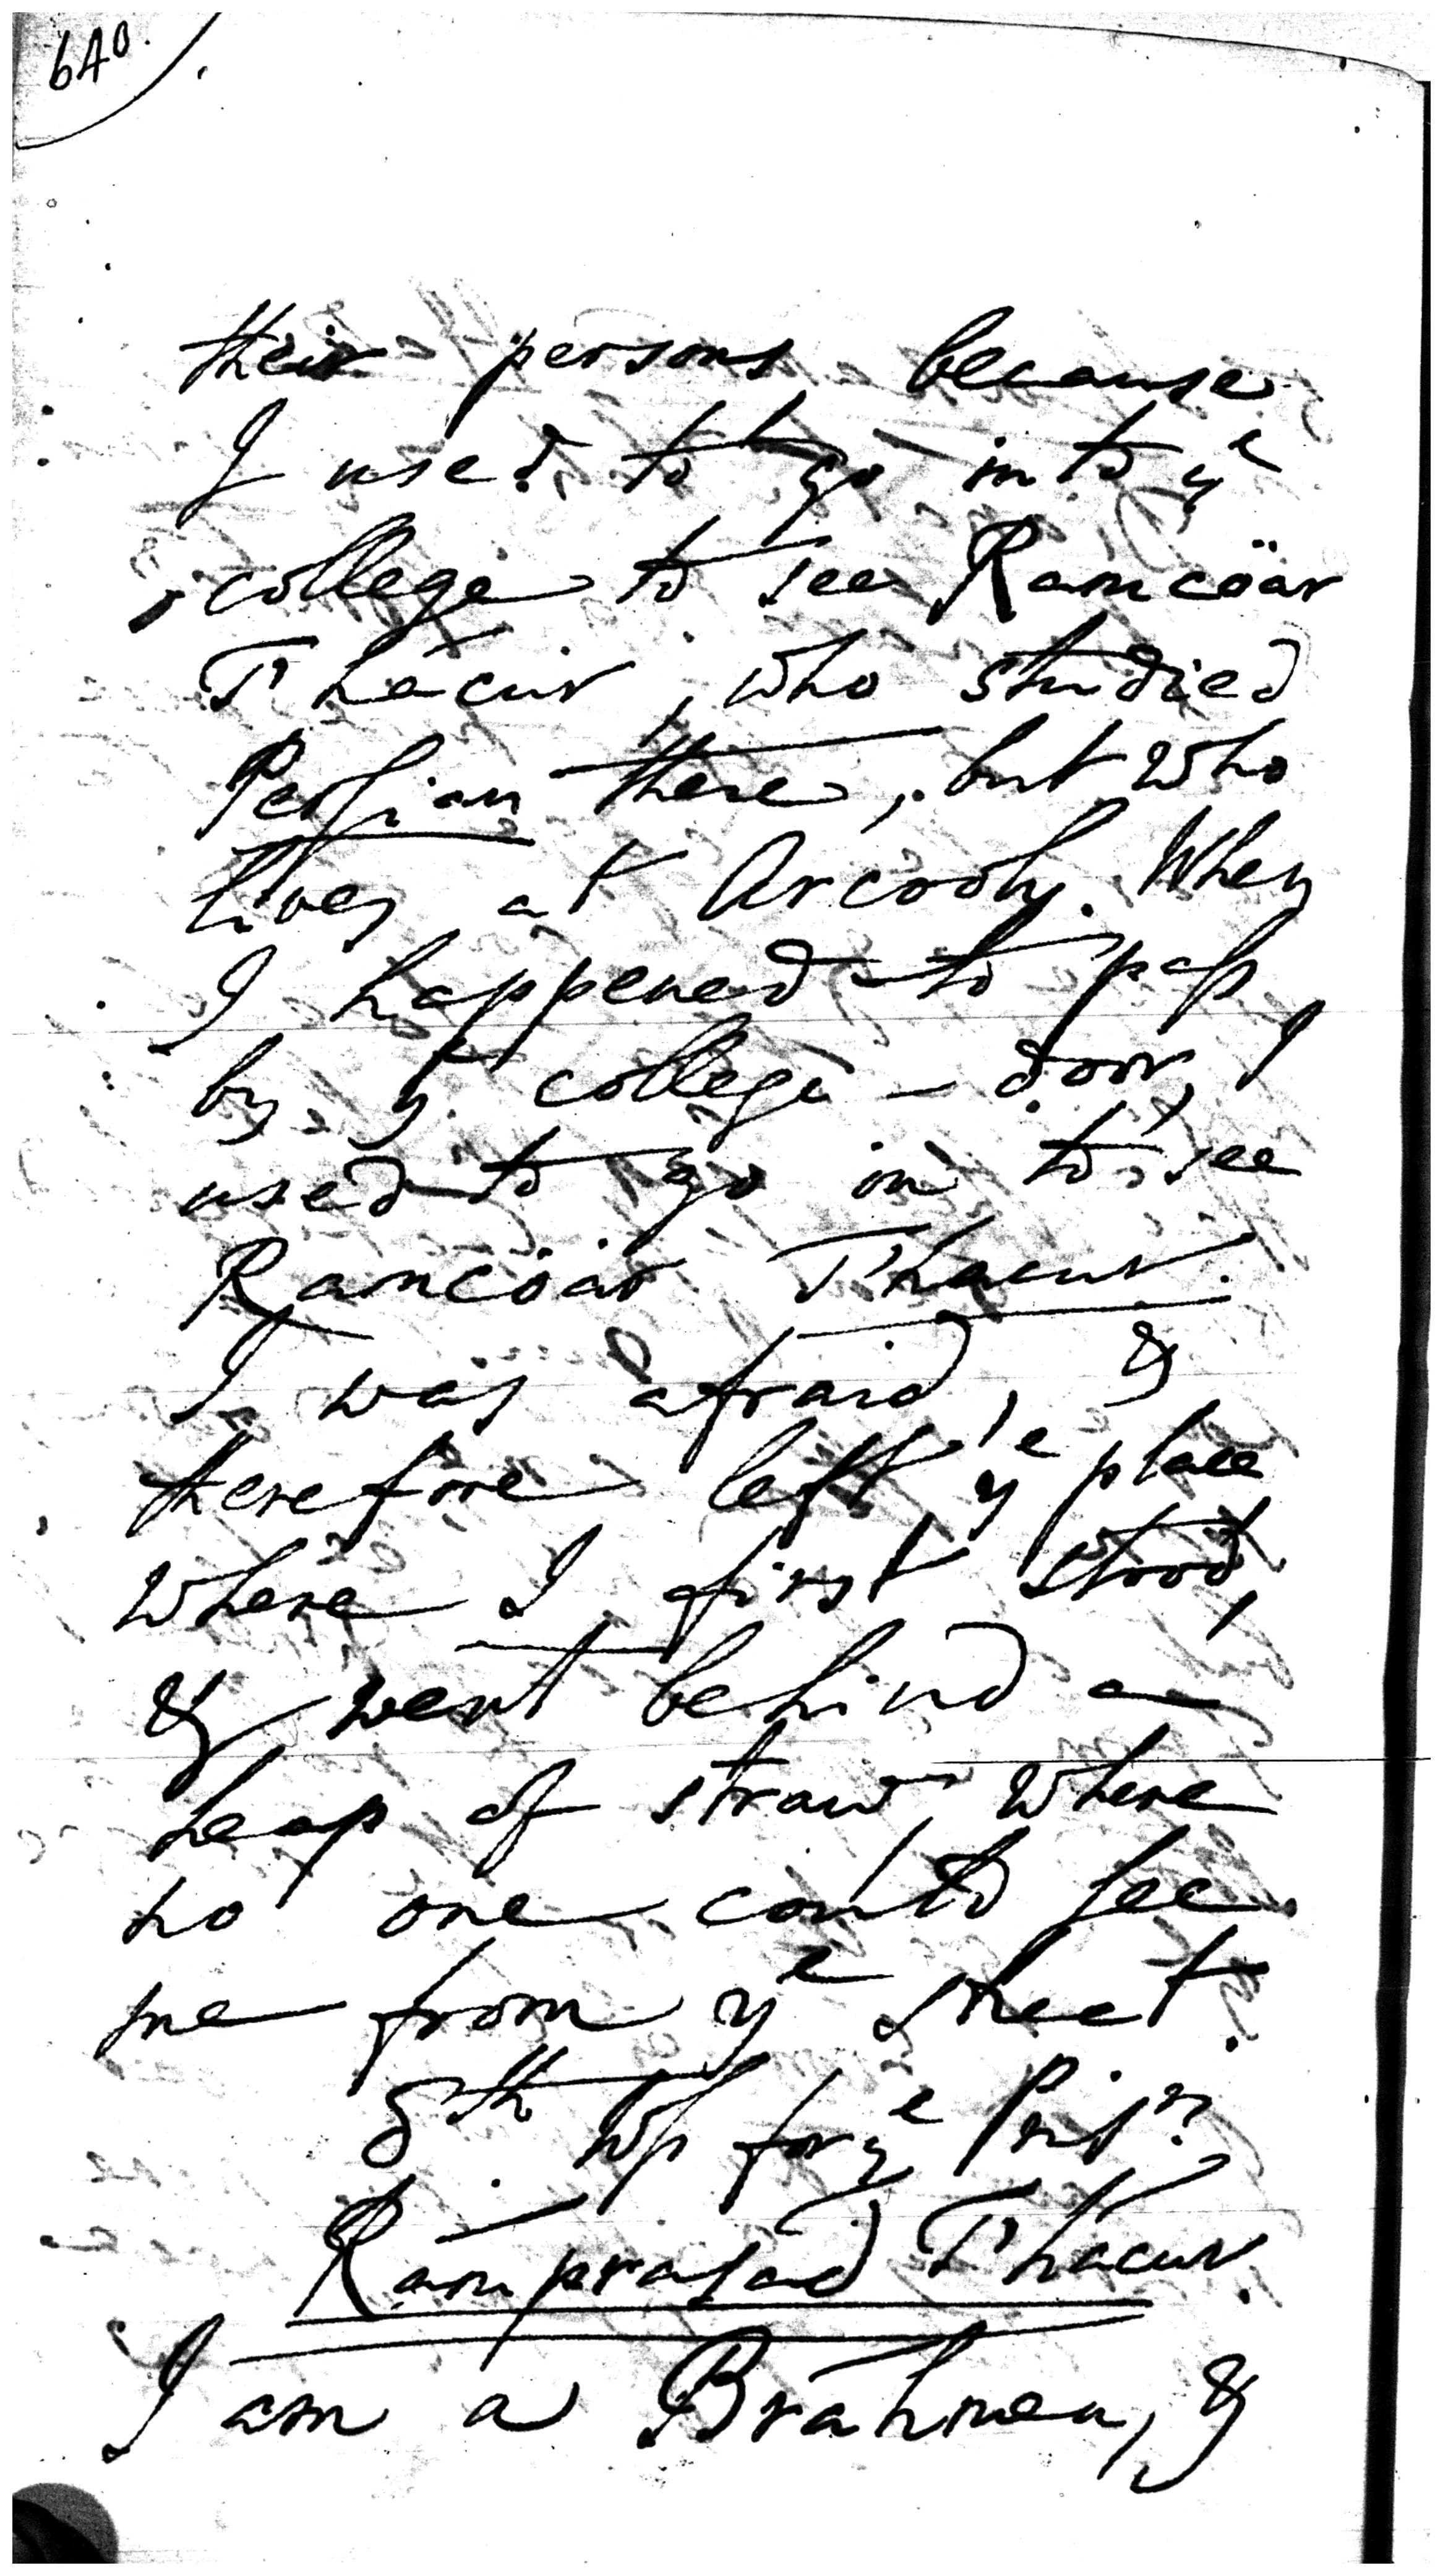 640.
their persons because
I used to go into yͤ
college to see Ramcöar
T'hácur, who studied
Persian there, but who
lives at Arcooly. When
I happened to pass
by yͤ college-door, I
used to go in to see
Ramcöar T'hacur.
I was afraid, &
therefore left yͤ place
where I first stood,
& went behind a
heap of straw, where
no one could see
me from yͤ street.
8th Ws for yͤ Prisrs
Rámprasád T'hácur.
I am a Bráhmen, &